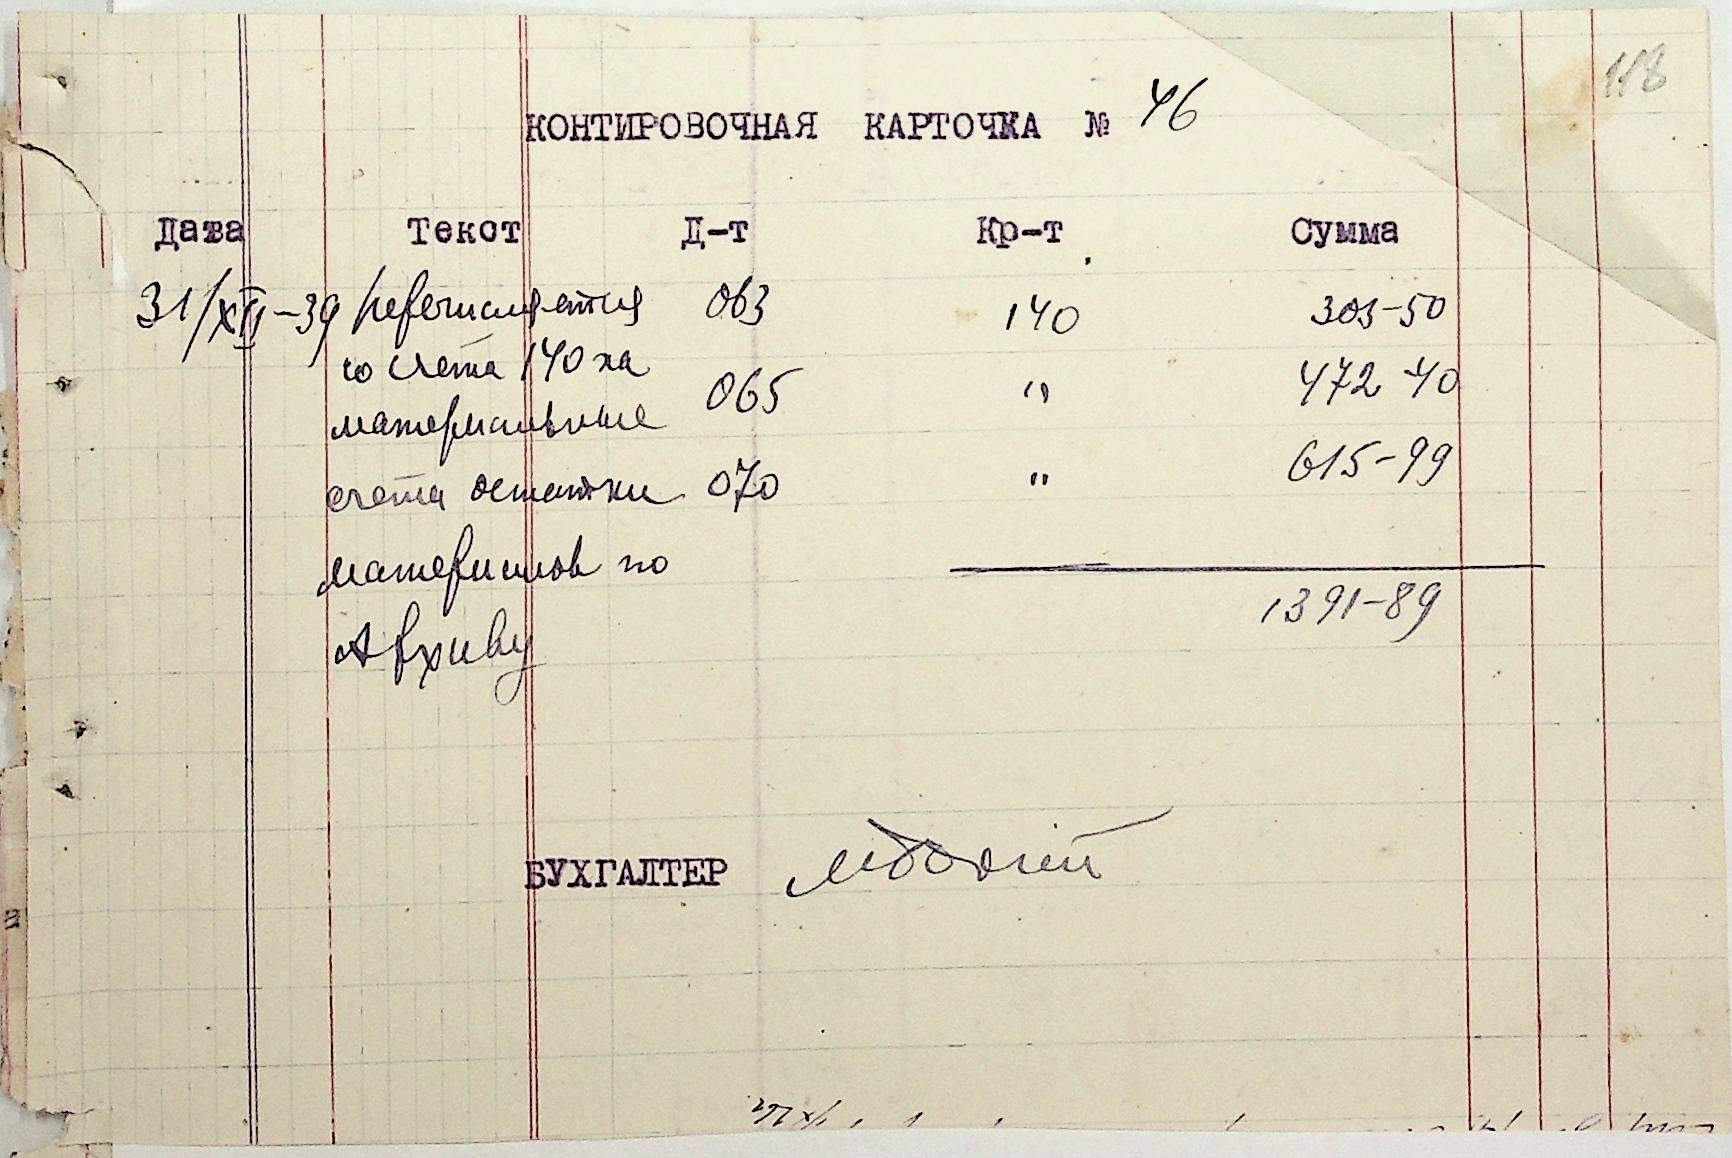 118
КОНТИРОВОЧНАЯ КАРТОЧКА № 46
Дата Текст Д-т Кр-т Сумма
31/XII-39 Перечисляется 063 140 303-50
со счета 140 на
065 " 472-40
материальные
615-99
счета остатки 070 "
материалов по
1391-89
Архиву
БУХГАЛТЕР